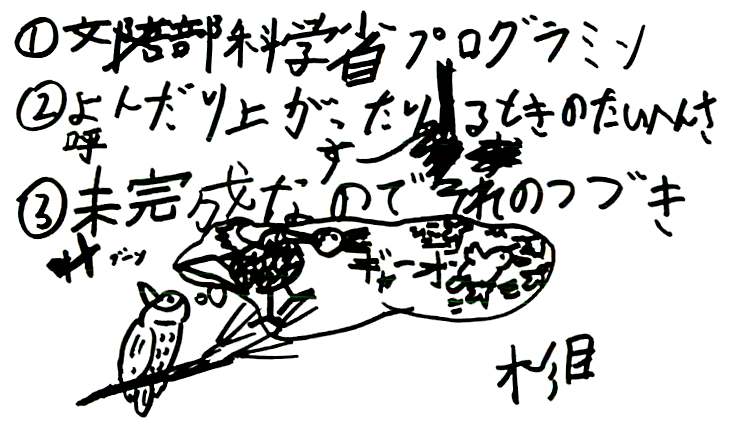 ①文部科学省プログラミン
②よんだり上がったりするときのたいへんさ
呼
③未完成なのでそれのつづき
ブーン
ギャーオ
杉目